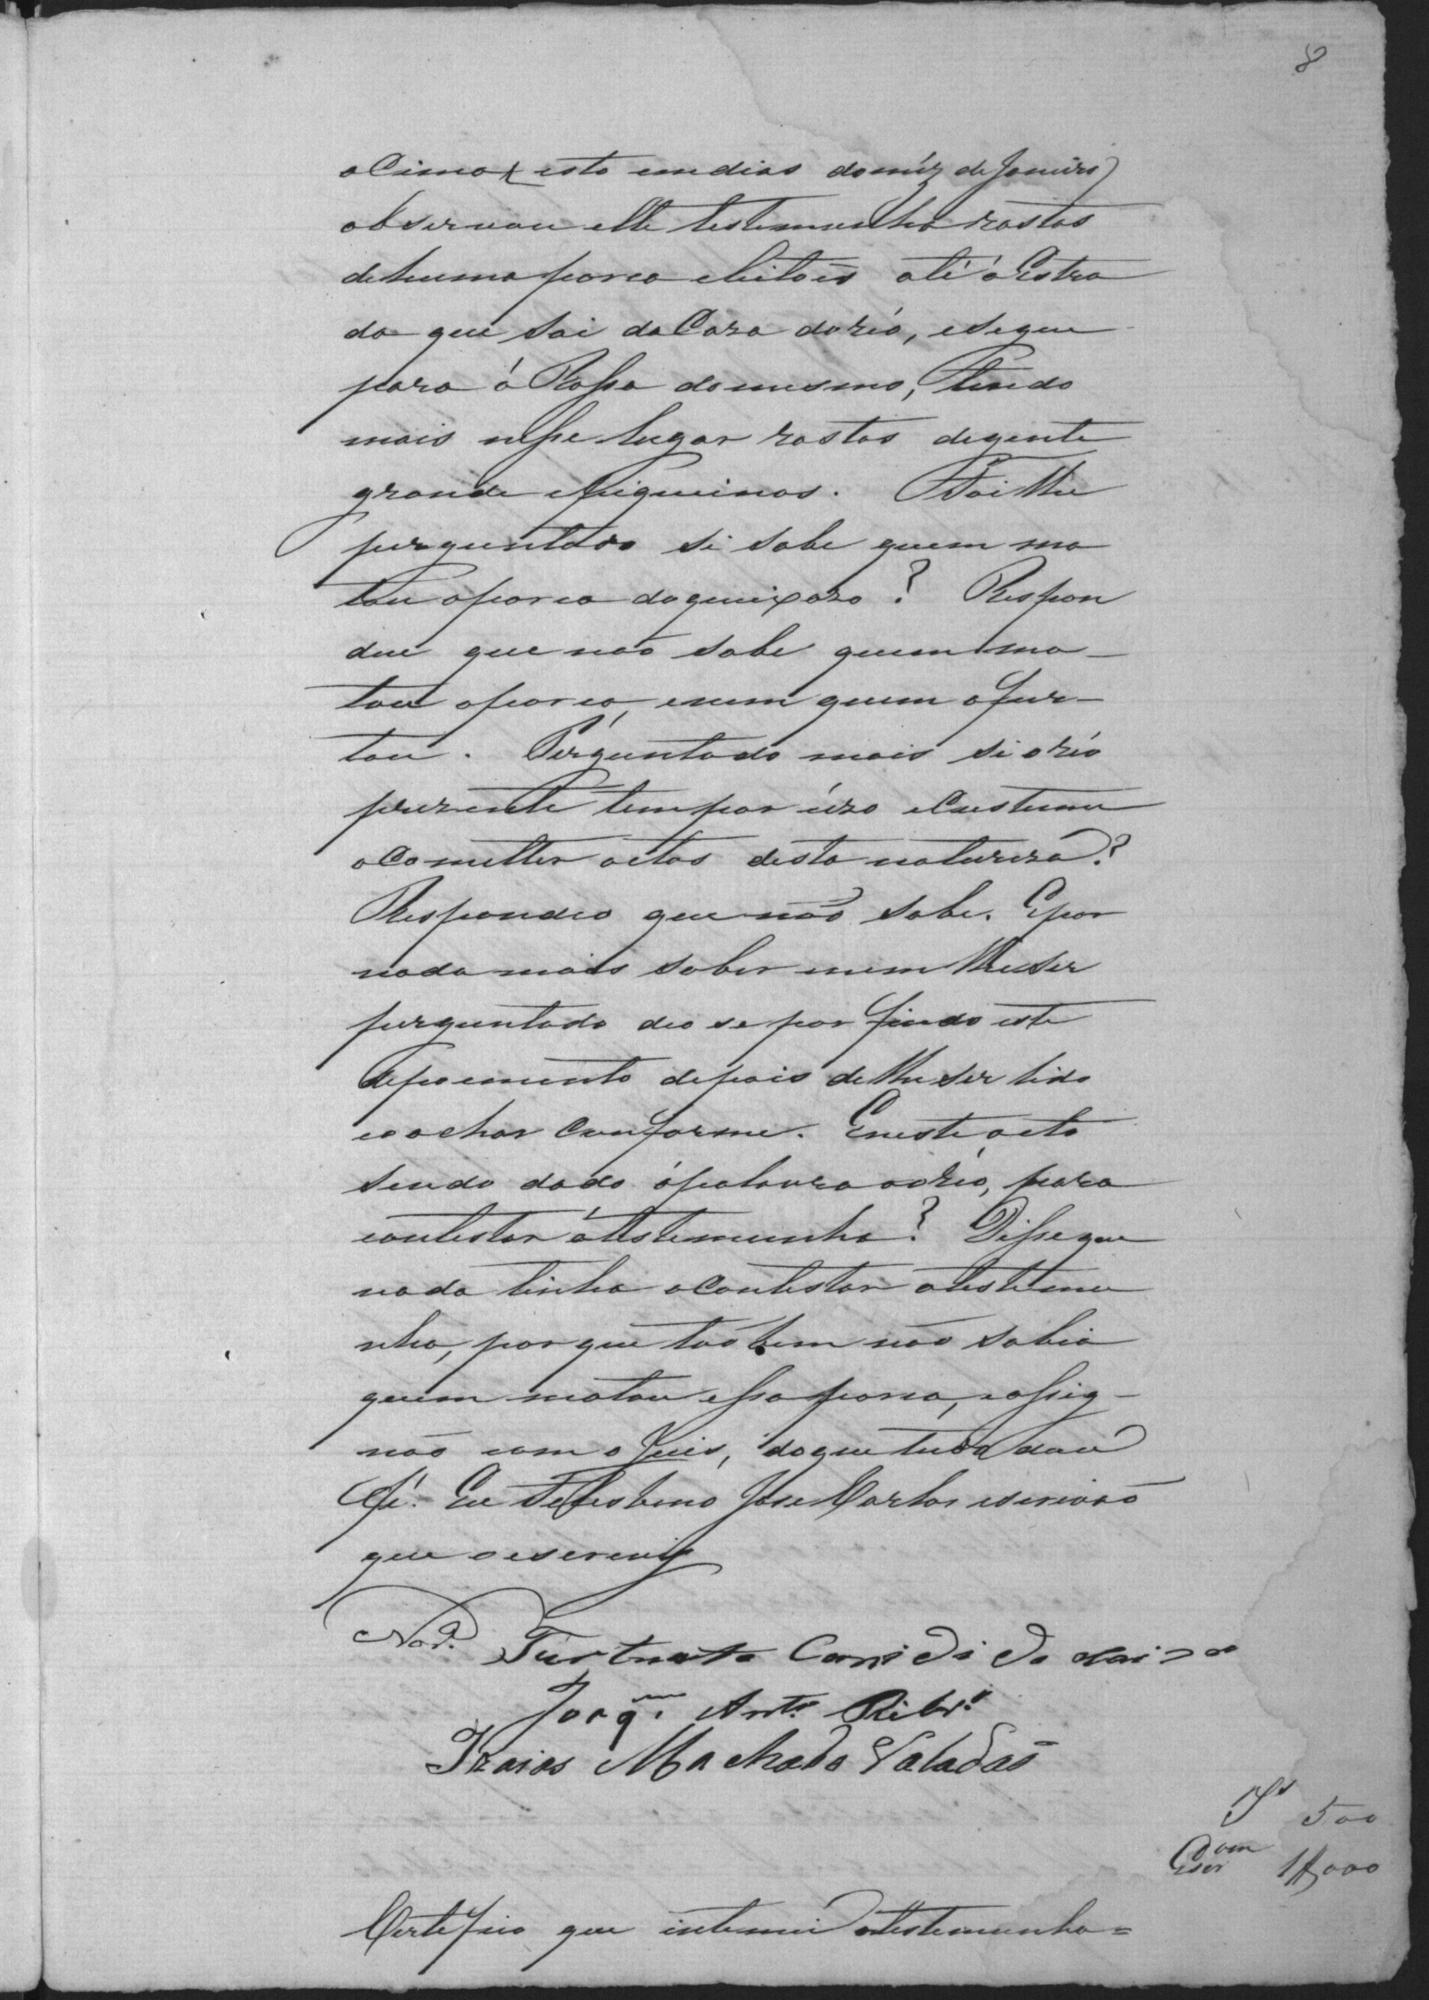 8
acima (isto em dias do mêz de Janeiro)
observou elle testemunha rastos
de huma porca e leitoes até á Estra
da que sai da Caza do réo, e segue
para á Rossa do mesmo, tendo
mais nesse lugar rastos de gente
grande e piqueinos. Foi lhe
perguntado si sabe quem ma
tou a porca do queixozo? Respon
deu que não sabe quem ma-
tou a porca, e nem quem a fur-
tou. Perguntado mais si o réo
prezente tem por úzo e Custume
a Cometter actos desta natureza?
Respondeo que não sabe. E por
nada mais saber e nem lhe ser
perguntado deo se por findo este
depoemento depois de lhe ser lido
e o achar Conforme. E neste acto
sendo dado á palavra ao réo, para
contestar á testemunha? Disse que
nada tinha a Contestar a testemu
nha, por que tão bem não sabia
quem matou essa porca, e assig-
não com o Juis, do que tudo dou
fé. Eu Selestino Jose Carlos escrivão
que o escrevy
Furtnato Candido
Joaqm. Anto. Ribro.
Izaias Machado Valadaõ
Js 500
Escrvam 1$000
Certefico que intemei a testemunha=